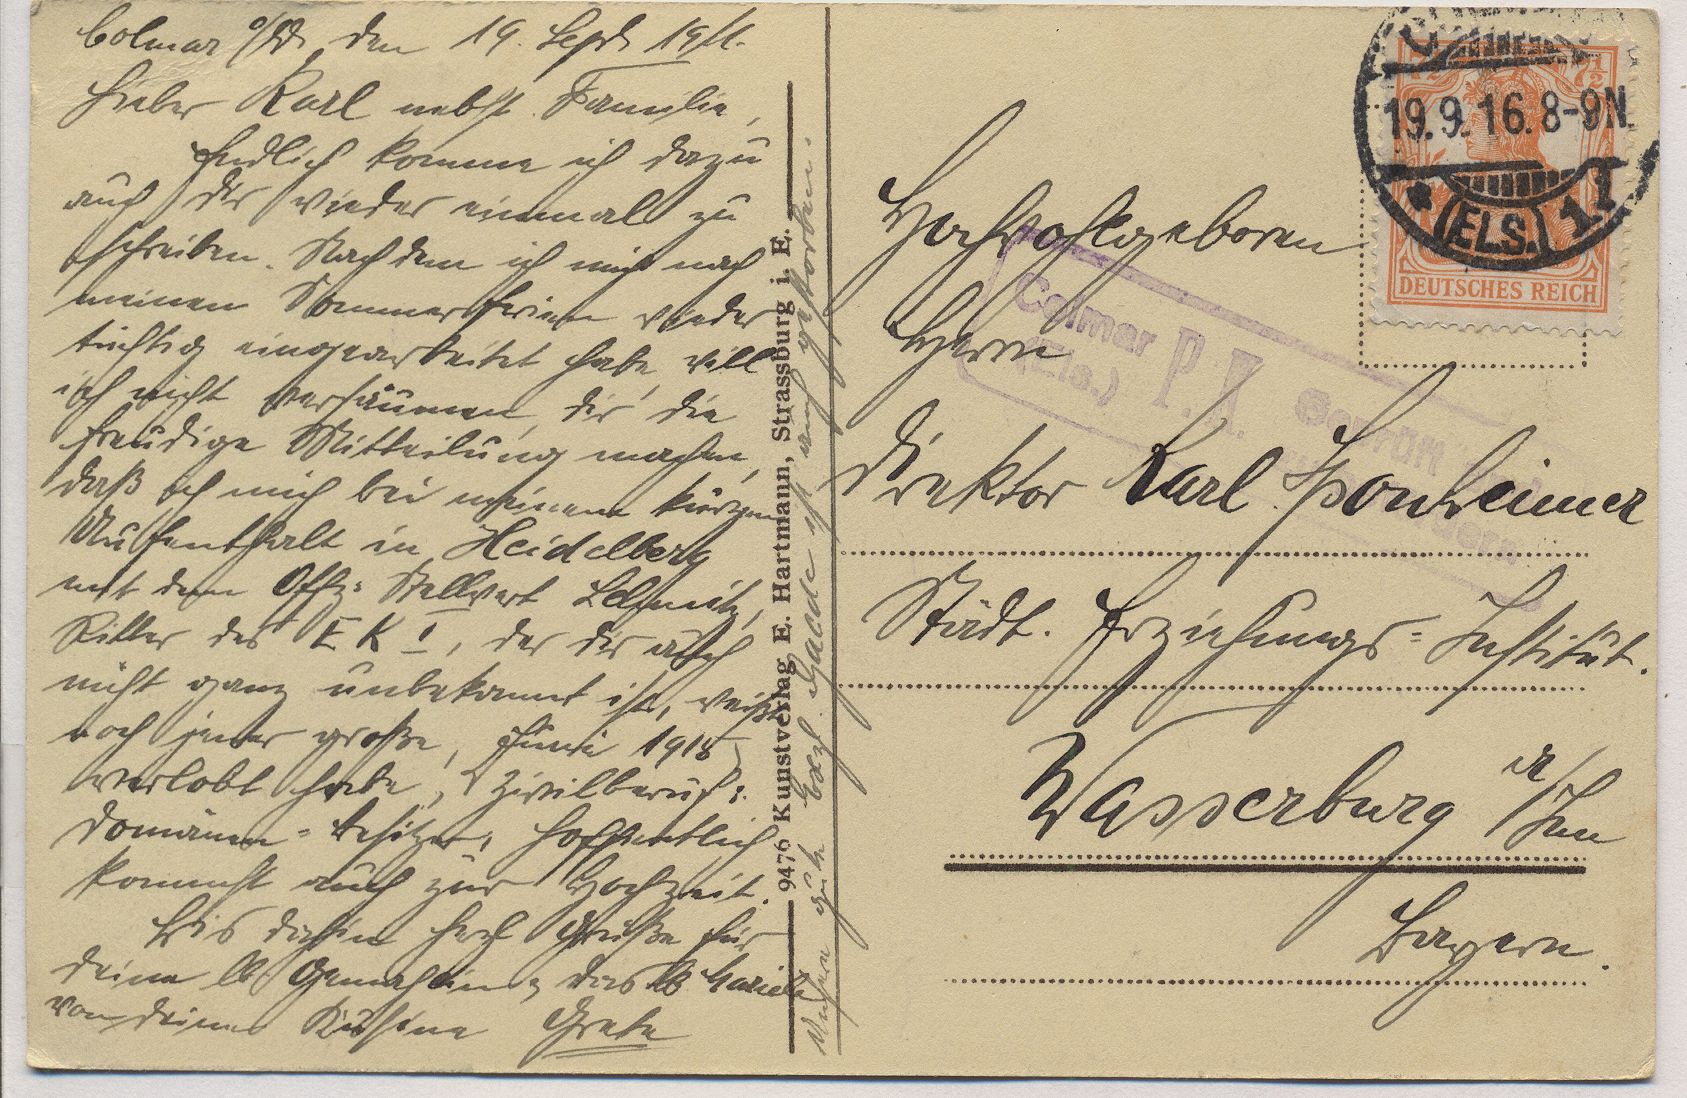 Colmar d. den 19. Sept. 1916.
Lieber Karl nebst Familie,
Endlich komme ich dazu
auch dir wieder einmal zu
schreiben. Nachdem ich mich nach
meinen Sommerferien wieder
tüchtig eingearbeitet habe, will
ich nicht versäumen, dir die
freudige Mitteilung machen,
daß ich mich bei meinem kurzen
Aufenthalt in Heidelberg
mit dem Offz. Stellvert. Schmitz,
Ritter des E K I, der dir auch
nicht ganz unbekannt ist, weißt
noch jener große, Juni 1915
verlobt habe, Zivilberuf:
Domänen-Besitzer, hoffentlich
kommst auch zur Hochzeit.
Bis dahin herzl Grüße für
deine lb Gemahlin, das lb
von deiner Kusine Grete
Unsere gute Exzl. Gaede ist auch gestorben.
9476 Kunstverlag E. Hartmann, Strassburg i. E.
19.9.16.8-9N.
(ELS.)
DEUTSCHES REICH
Colmar
(Els.)
P. K.
Geprüft
Hochwohlgeboren
Herrn
Direktor Karl Sponheimer
Städt. Erziehungs-Institut.
Wasserburg a/Inn
Bayern.